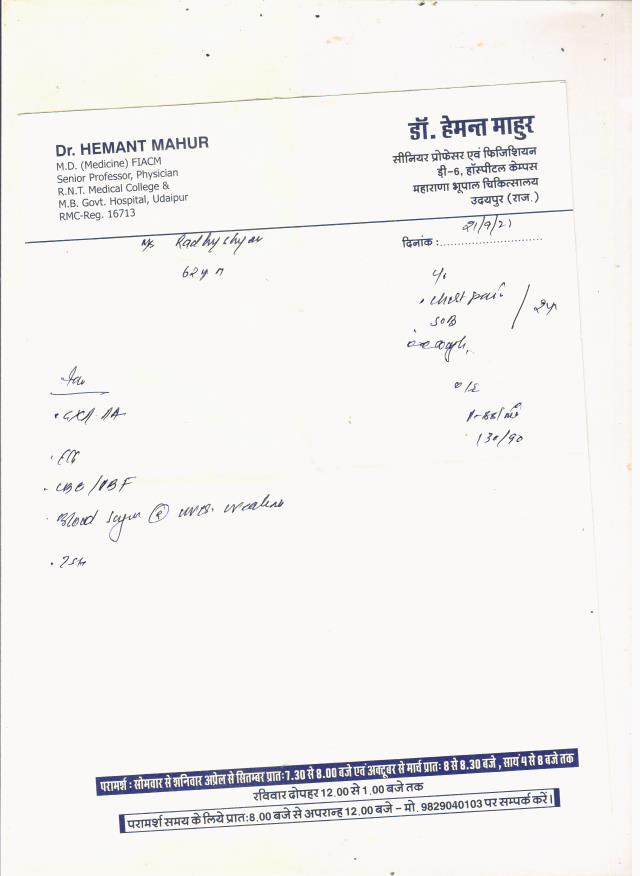 Dr. HEMANT MAHUR
M.D. (Medicine) FIACM
Senior Professor, Physician
R.N.T. Medical College &
M.B. Govt. Hospital, Udaipur
RMC-Reg. 16713
डॉ. हेमन्त माहुर
सीनियर प्रोफेसर एवं फिजिशियन
डी-6, हॉस्पीटल केम्पस
महाराणा भूपाल चिकित्सालय
उदयपुर (राज.)
दिनांक :
21/9/21
Radhyshyam
62y M
c/o
• chest pain
SOB
cough
o/E
P-88/mt
130/90
• CXR-PA
• ECG
• CBC/PBF
• Blood sugar urea creatinine
• TSH
परामर्श : सोमवार से शनिवार अप्रेल से सितम्बर प्रातः7.30 से 8.00 बजे एवं अक्टूबर से मार्च प्रातः 8 से 8.30 बजे , सायं 4 से 8 बजे तक
रविवार दोपहर 12.00 से 1.00 बजे तक
परामर्श समय के लिये प्रातः8.00 बजे से अपरान्ह 12.00 बजे – मो. 9829040103 पर सम्पर्क करें।